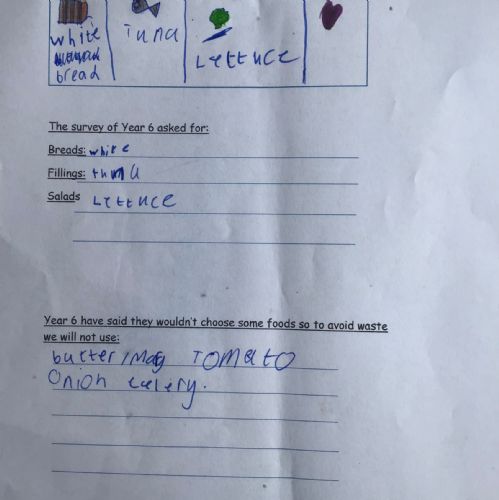 white tuna
bread Lettuce
The survey of Year 6 asked for:
Breads: white
Fillings: tuna
Salads Lettuce
Year 6 have said they wouldn't choose some foods so to avoid waste
we will not use:
butter/mag TOMATO
Onion celery.